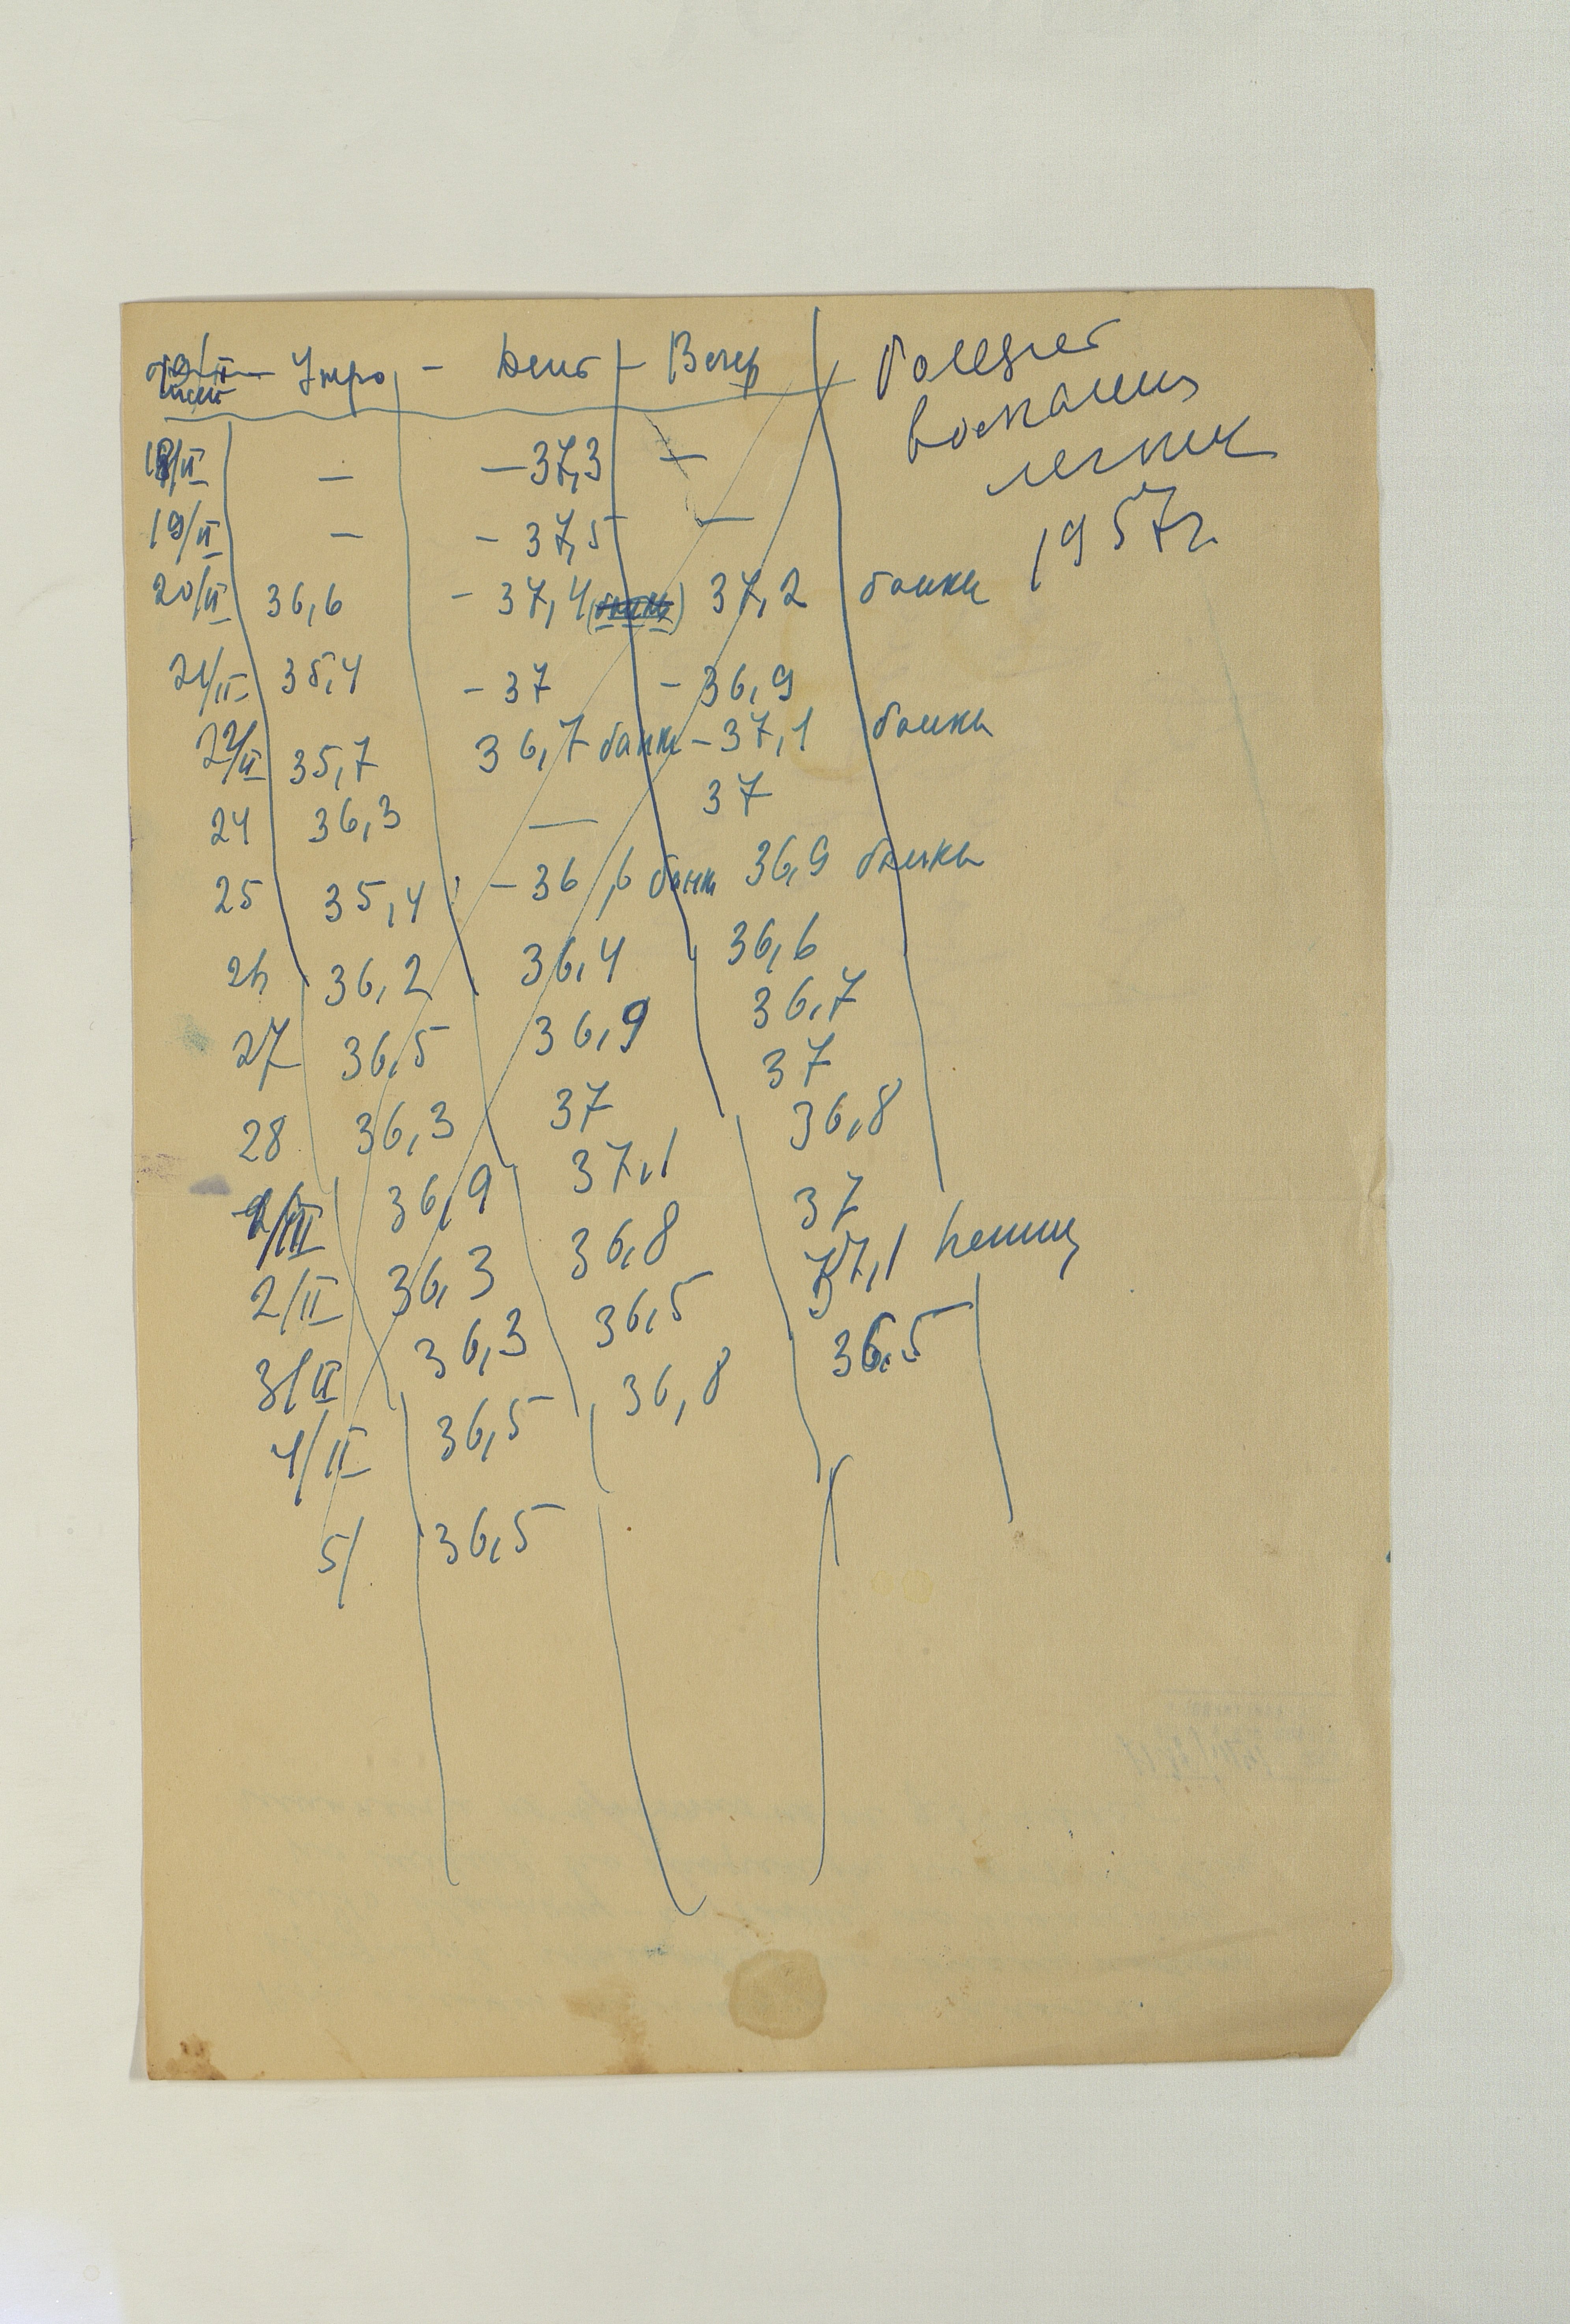 Утро - День - Вечер
болезнь
воспаление
легких
1957 г.
18/II — - 37,3 —
19/II — - 37,5 —
20/II 36,6 - 37,4 37,2 банки
21/II 35,4 - 37 - 36,9
22/II 35,7 36,7 банки - 37,1 банки
24 36,3 — 37
25 35,4 - 36,6 банки 36,9 банки
26 36,2 36,4 36,6
27 36,5 36,9 36,7
28 36,3 37 37
1/III 36,9 37,1 36,8
2/II 36,3 36,8 37
3/II 36,3 36,5 37,1
4/II 36,5 36,8 36,5
5/ 36,5